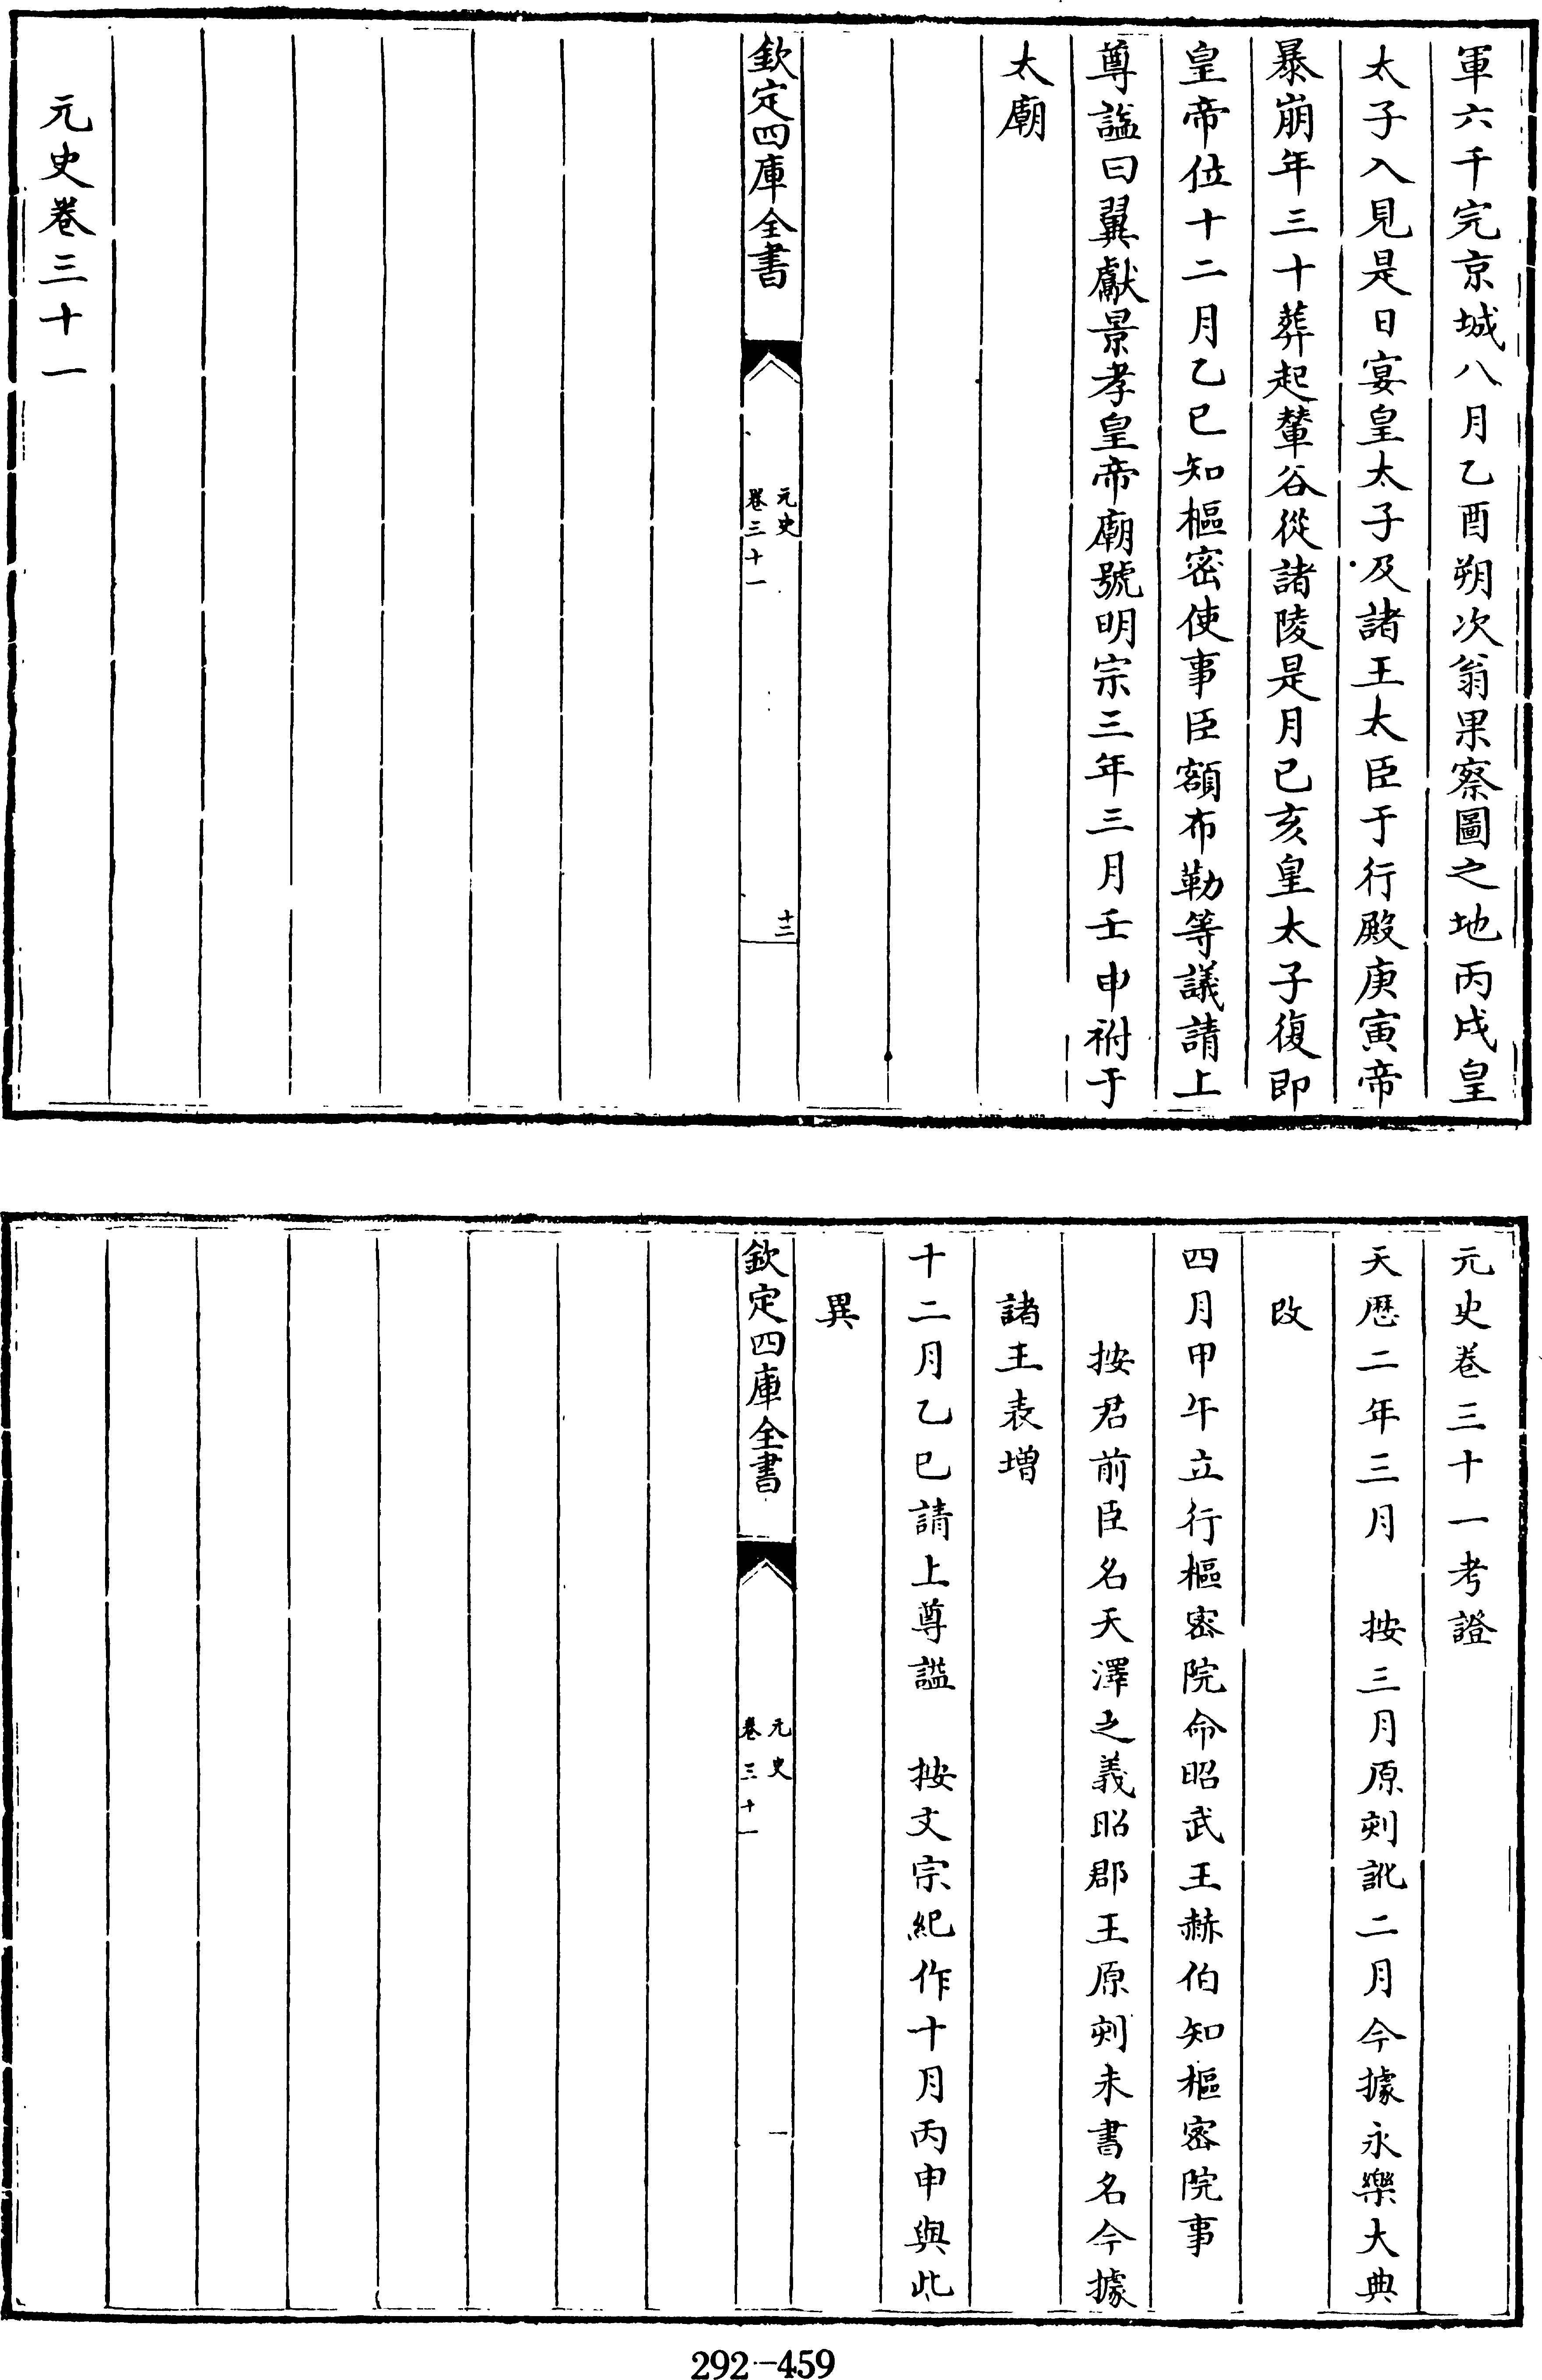 軍六千完京城八月乙酉朔次翁果察圖之地丙戌皇
太子入見是日宴皇太子及諸王太臣于行殿庚寅帝
暴崩年三十葬起輦谷從諸陵是月己亥皇太子復即
皇帝位十二月乙巳知樞密使事臣額布勒等議請上
尊諡曰翼獻景孝皇帝廟號明宗三年三月壬申祔于
太廟
欽定四庫全書
元史
卷三十一
十二
元史卷三十一
元史卷三十一考證
天厯二年三月 按三月原刻訛二月今據永樂大典
改
四月甲午立行樞密院命昭武王赫伯知樞密院事
按君前臣名天澤之義昭郡王原刻未書名今據
諸王表增
十二月乙巳請上尊諡 按文宗紀作十月丙申與此
異
欽定四庫全書
元史
卷三十一
一
292-459